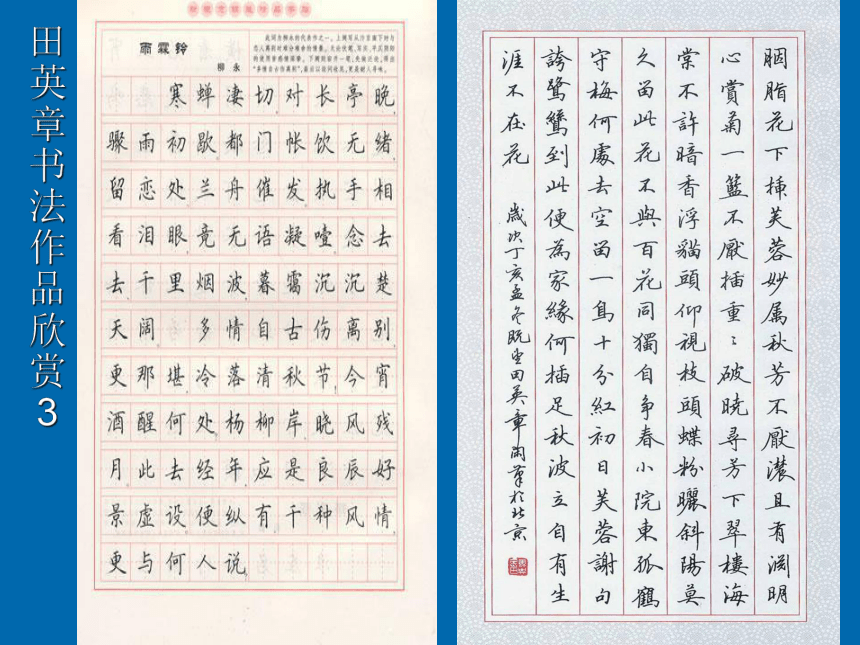 田英章书法作品欣赏3
雨霖铃
柳永
寒蝉凄切对长亭晚
骤雨初歇都门帐饮无绪
留恋处兰舟催发执手相
看泪眼竟无语凝噎念去
去千里烟波暮霭沉沉楚
天阔 多情自古伤离别
更那堪冷落清秋节今宵
酒醒何处杨柳岸晓风残
月此去经年应是良辰好
景虚设便纵有千种风情
更与何人说
胭脂花下插芙蓉妙属秋芳不厭濃且有淵明
心賞菊一籃不厭插重〻破曉尋芳下翠樓海
棠不許暗香浮貓頭仰視枝頭蝶粉曬斜陽莫
久留此花不與百花同獨自争春小院東孤鶴
守梅何處去空留一鳥十分紅初日芙蓉謝句
誇鷺鷥到此便為家緣何插足秋波立自有生
涯不在花 歲次丁亥孟冬既望田英章闲筆於北京